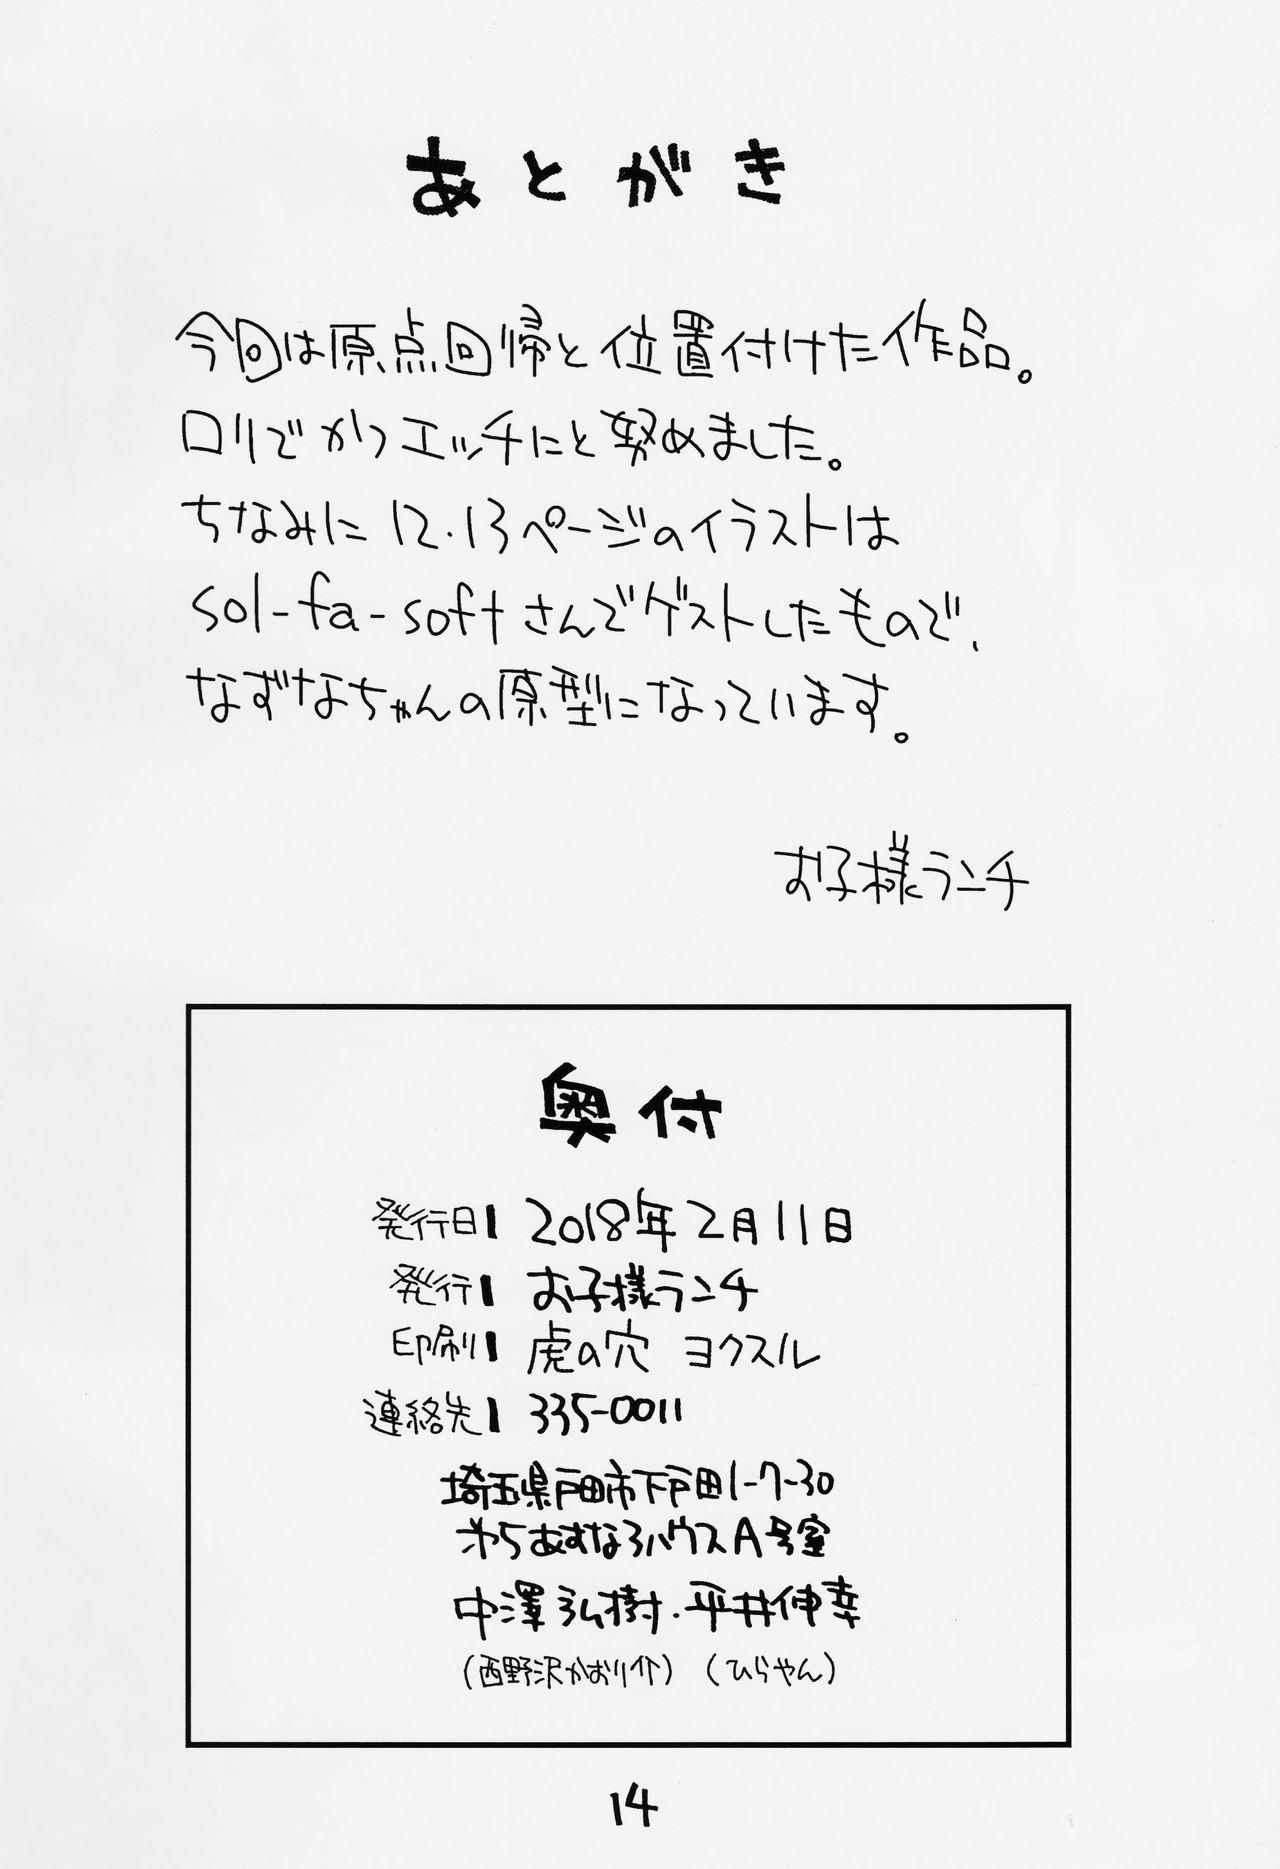 あとがき
今回は原点回帰と位置付けた作品。
ロリでかつエッチにと努めました。
ちなみに12.13ページのイラストは
sol-fa-softさんでゲストしたもので、
なずなちゃんの原型になっています。
お子様ランチ
奥付
発行日 2018年2月11日
発行 お子様ランチ
印刷 虎の穴 ヨクスル
連絡先 335-0011
埼玉県戸田市下戸田1-7-30
あすなろハウスA号室
中澤弘樹・平井伸幸
(西野沢かおり介) (ひらやん)
14